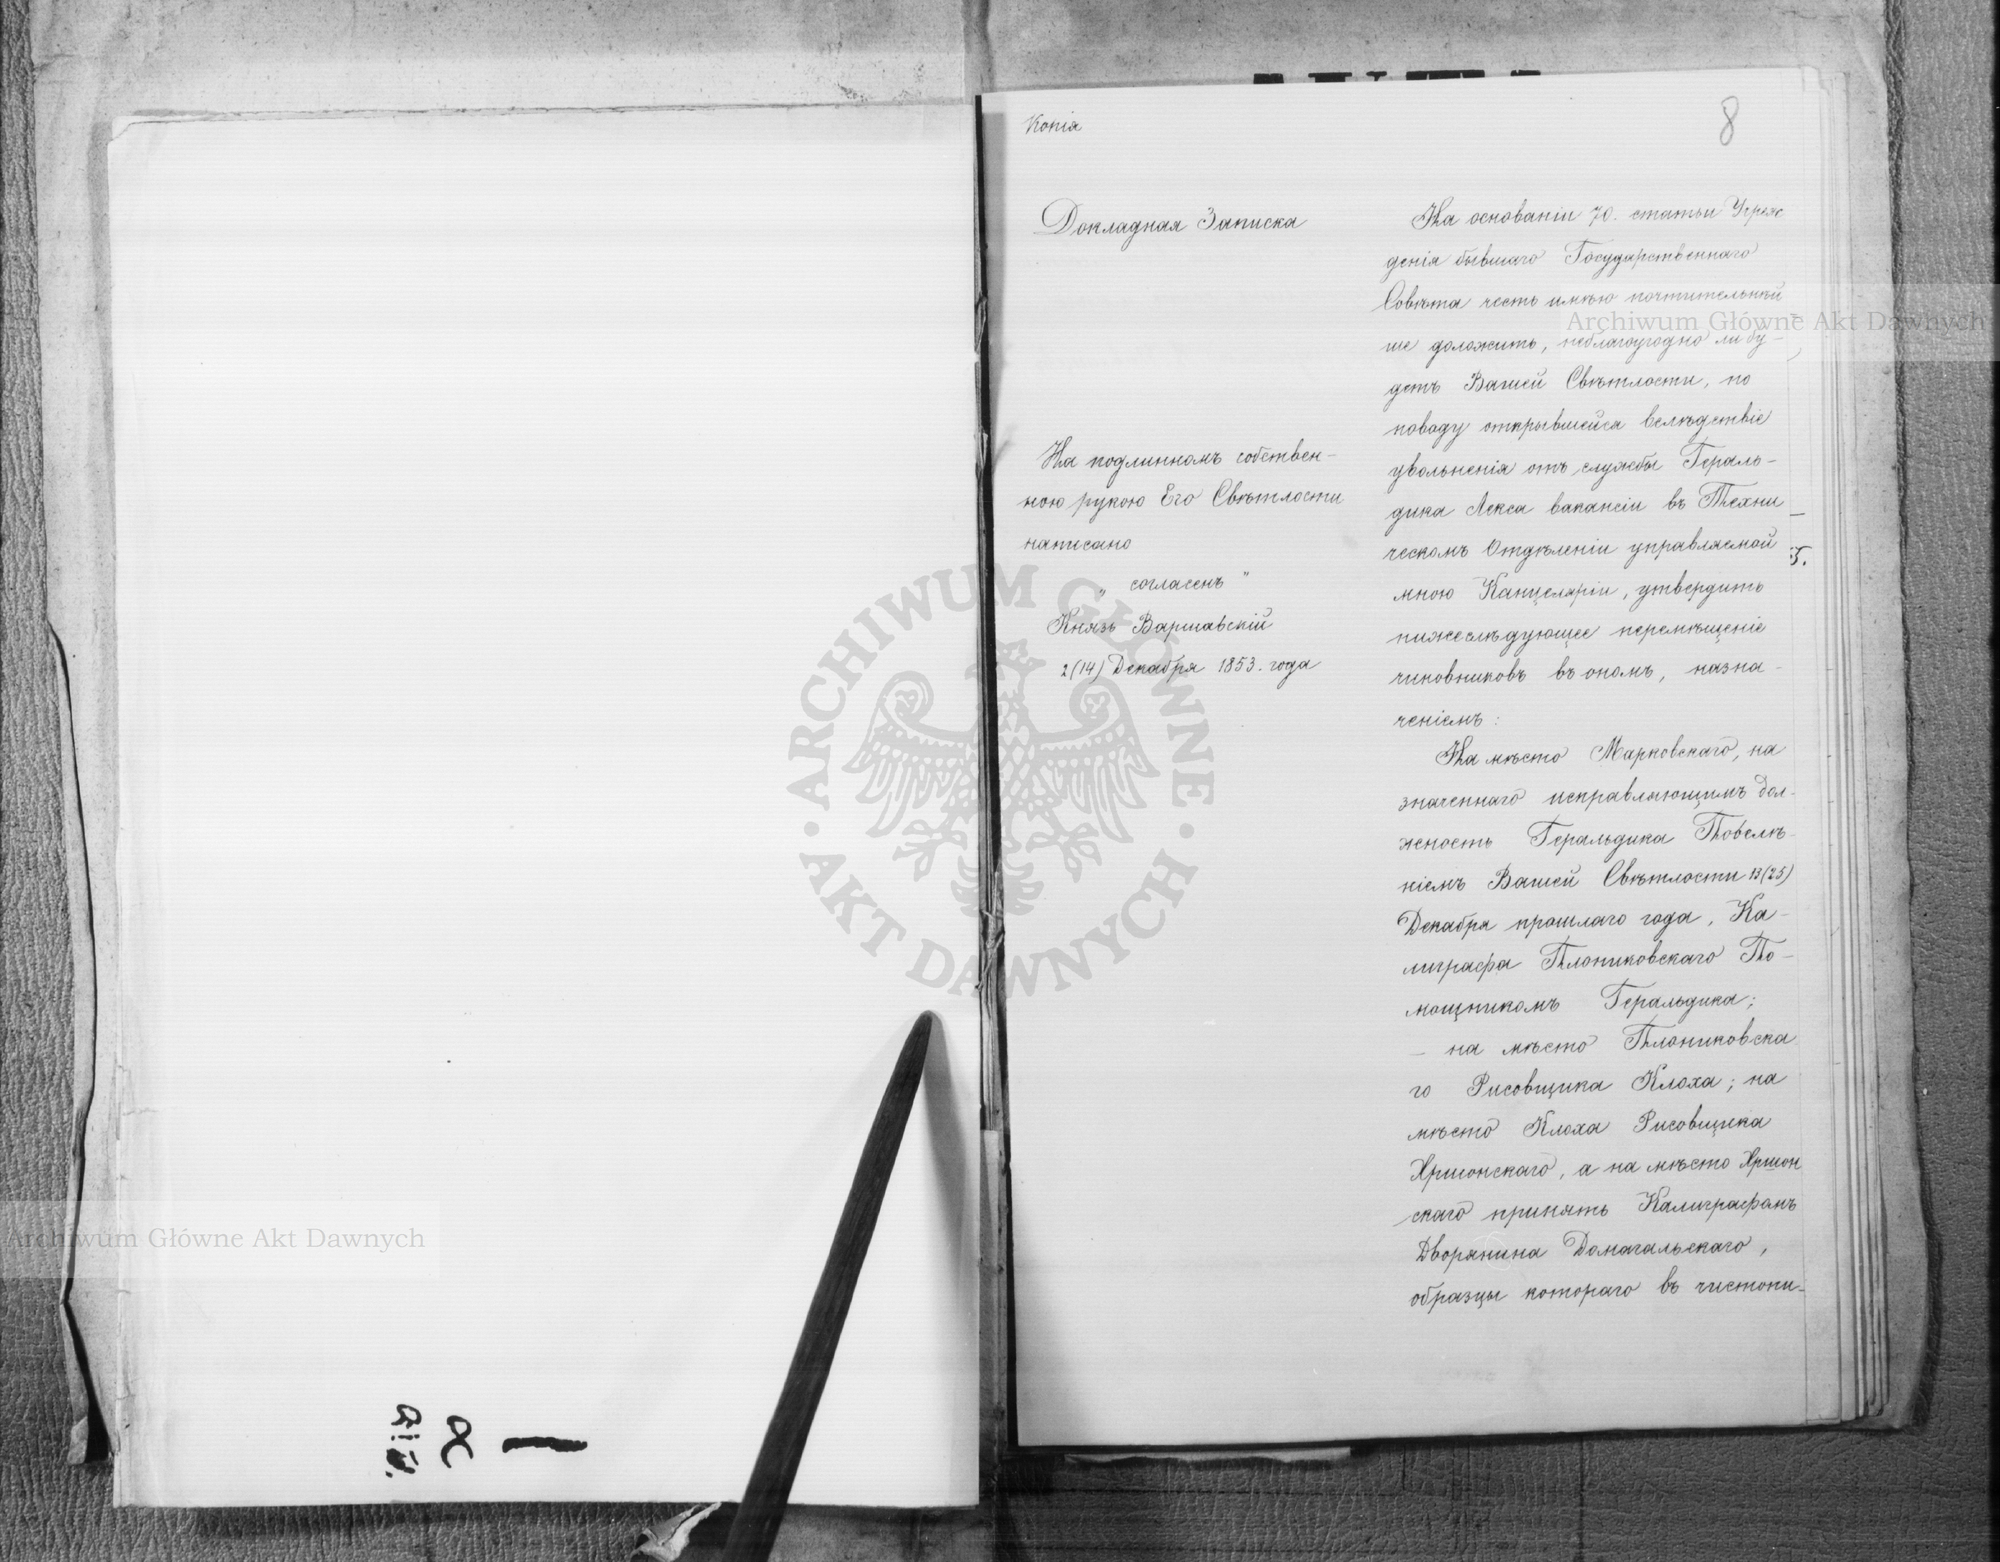 Копія
8
Докладная Записка
На подлинномъ собствен-
ною рукою Его Свѣтлости
написано
„ согласенъ "
Князь Варшавскій
2 (14) Декабря 1853. года
На основаніи 70. статьи Учреж
денія бывшаго Государственнаго
Совѣта честь имѣю почтительнѣй
ше доложить, неблагоугодно ли бу-
детъ Вашей Свѣтлости, по
поводу открывшейся вслѣдствіе
увольненія отъ службы Гераль-
дика Лекса вакансіи въ Техни
ческомъ Отдѣленіи управляемой
мною Канцеляріи, утвердить
нижеслѣдующее перемѣщеніе
чиновниковъ въ ономъ, назна-
ченіемъ:
На мѣсто Марковскаго, на
значеннаго исправляющимъ дол-
жность Геральдика Повелѣ-
ніемъ Вашей Свѣтлости 13 (25)
Декабря прошлаго года, Ка-
лиграфа Плониковскаго По-
мощникомъ Геральдика;
— на мѣсто Плониковска
го Рисовщика Клоха; на
мѣсто Клоха Рисовщика
Хршонскаго, а на мѣсто Хршон
скаго принять Калиграфомъ
Дворянина Домагальскаго,
образцы котораго въ чистопи-
Archiwum Główne Akt Dawnych
Archiwum Główne Akt Dawnych
ARCHIWUM GŁÓWNE · AKT DAWNYCH ·